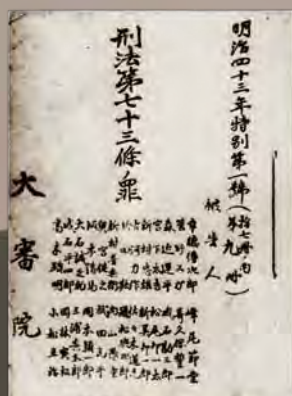 明治四十三年特別第一號
(拾七冊ノ内
第九冊)
被告人
幸徳傳次郎
管野スガ
森近運平
宮下太吉
新村忠雄
古河力作
新村善兵衛
奥宮健之
坂本清馬
大石誠之助
成石平四郎
高木顕明
峰尾節堂
崎久保誓一
成石勘三郎
松尾卯一太
新美卯一郎
佐々木道元
飛松與次郎
内山愚童
武田九平
岡本頴一郎
三浦安太郎
岡林寅松
小松丑治
刑法第七十三條ノ罪
大審院